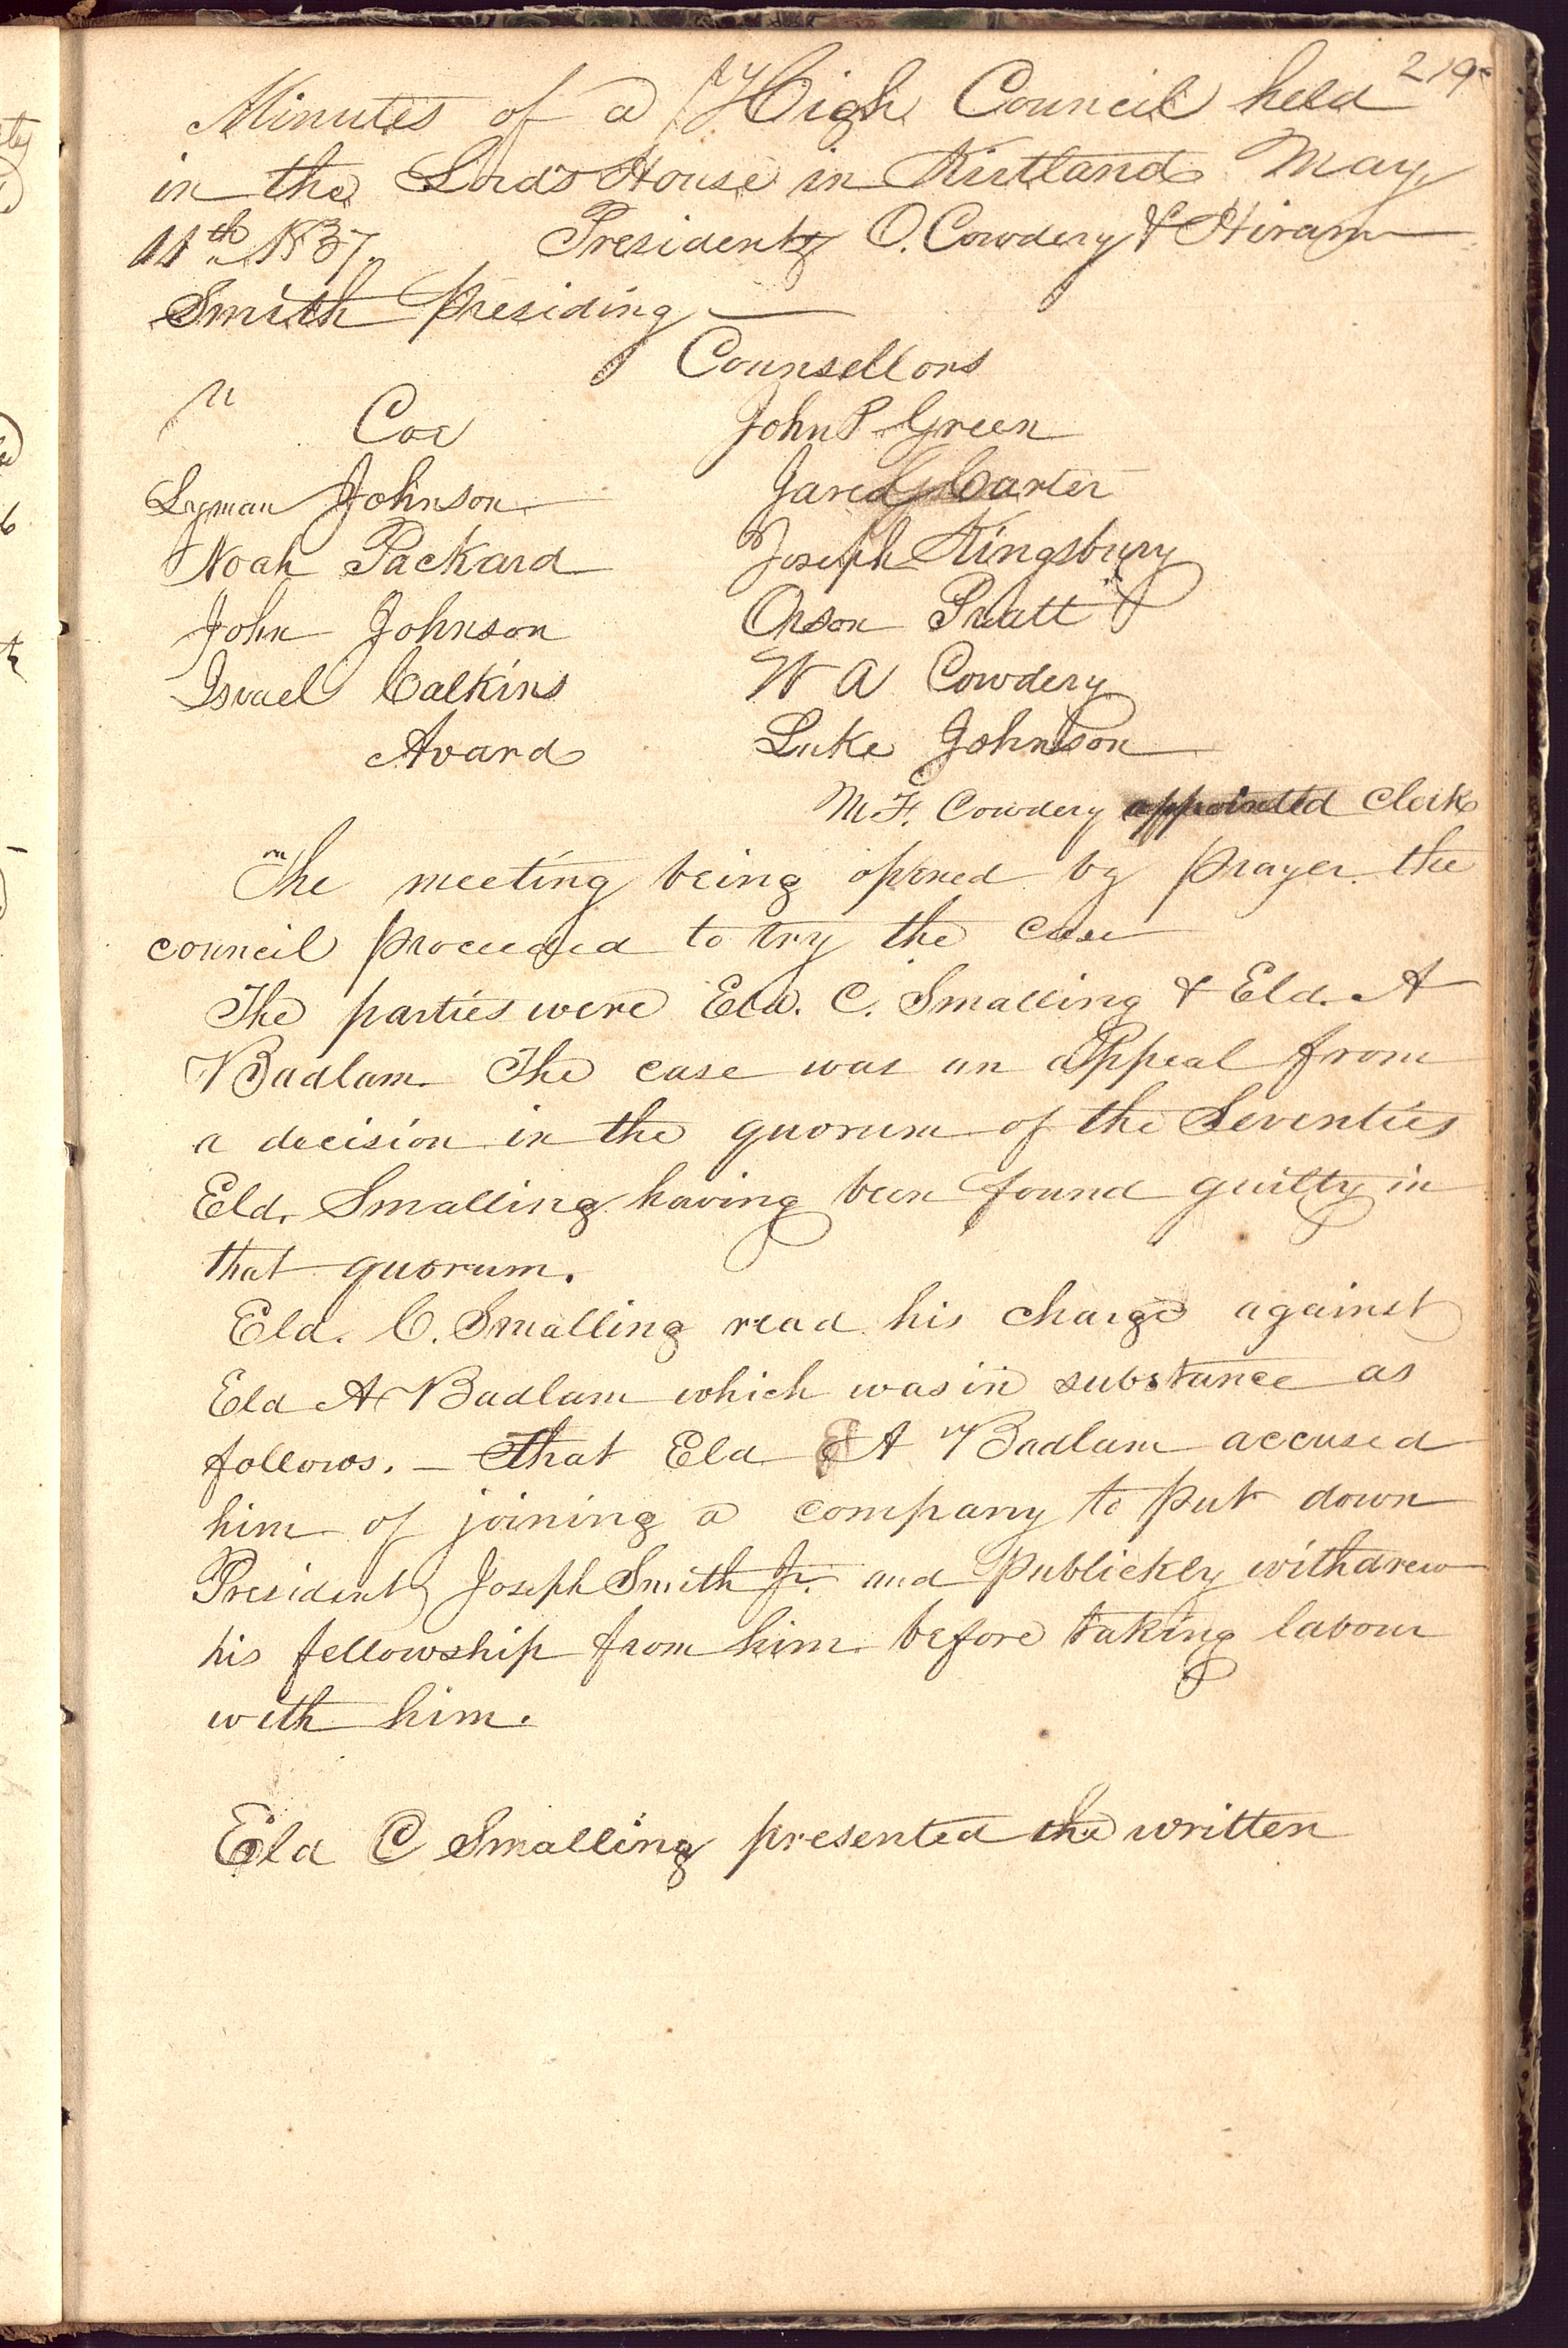 219
Minutes of a High Council held
in the Lords House in Kirtland May
11th 1837. Presidents O. Cowdery & Hiram
Smith presiding
Counsellors
Coe John P Green
Lyman Johnson Jared Carter
Noah Packard Joseph Kingsbury
John Johnson Orson Pratt
Israel Calkins W A Cowdery
Avard Luke Johnson
M. F. Cowdery appointed Clerk
The meeting being opened by prayer the
council proceeded to try the case
The parties were Eld. C. Smalling & Eld. A
Badlam. The case was an appeal from
a decision in the quorum of the Seventies
Eld. Smalling having been found guilty in
that quorum.
Eld. C. Smalling read his charge against
Eld A Badlam which was in substance as
follows. — That Eld A Badlam accused
him of joining a company to put down
President Joseph Smith Jr. and publickly withdrew
his fellowship from him before taking labour
with him.
Eld C Smalling presented the written